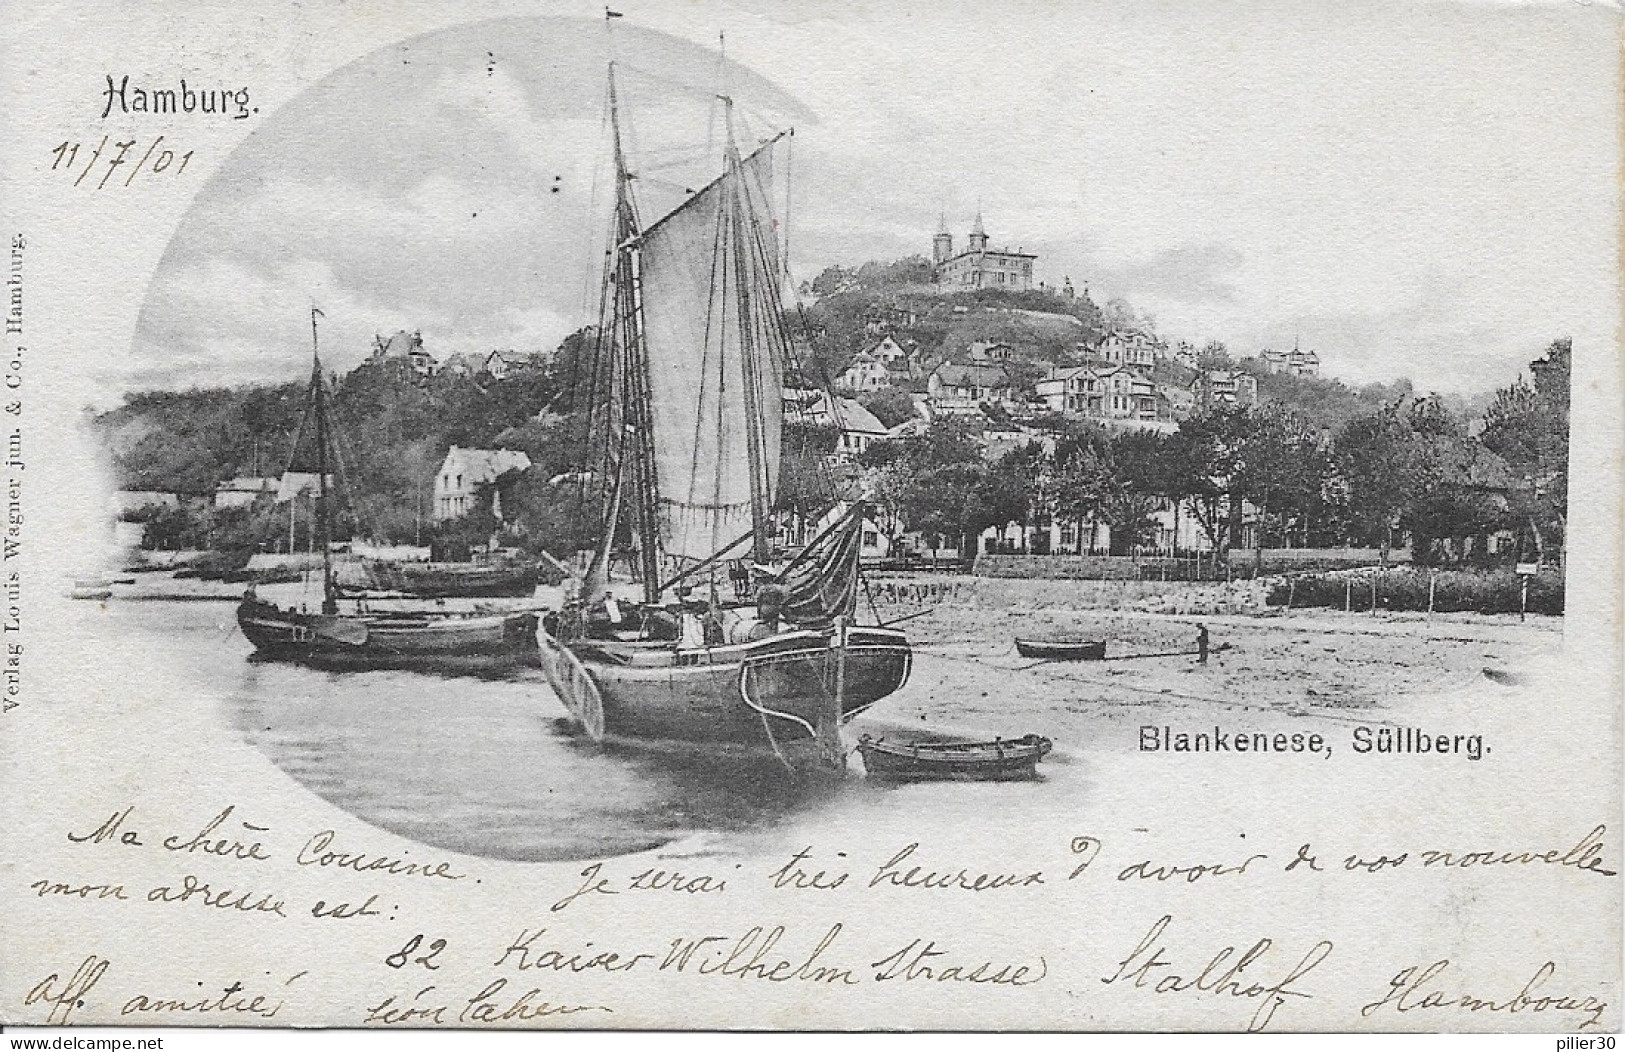 Hamburg.
11/7/01
Verlag Louis Wagner jun. & Co., Hamburg.
Blankenese, Süllberg.
Ma chère Cousine. Je serai très heureux d'avoir de vos nouvelles
mon adresse est:
82 Kaiser Wilhelm Strasse Stalhof Hambourg
aff. amitiés Léon
delcampe.net
pilier30